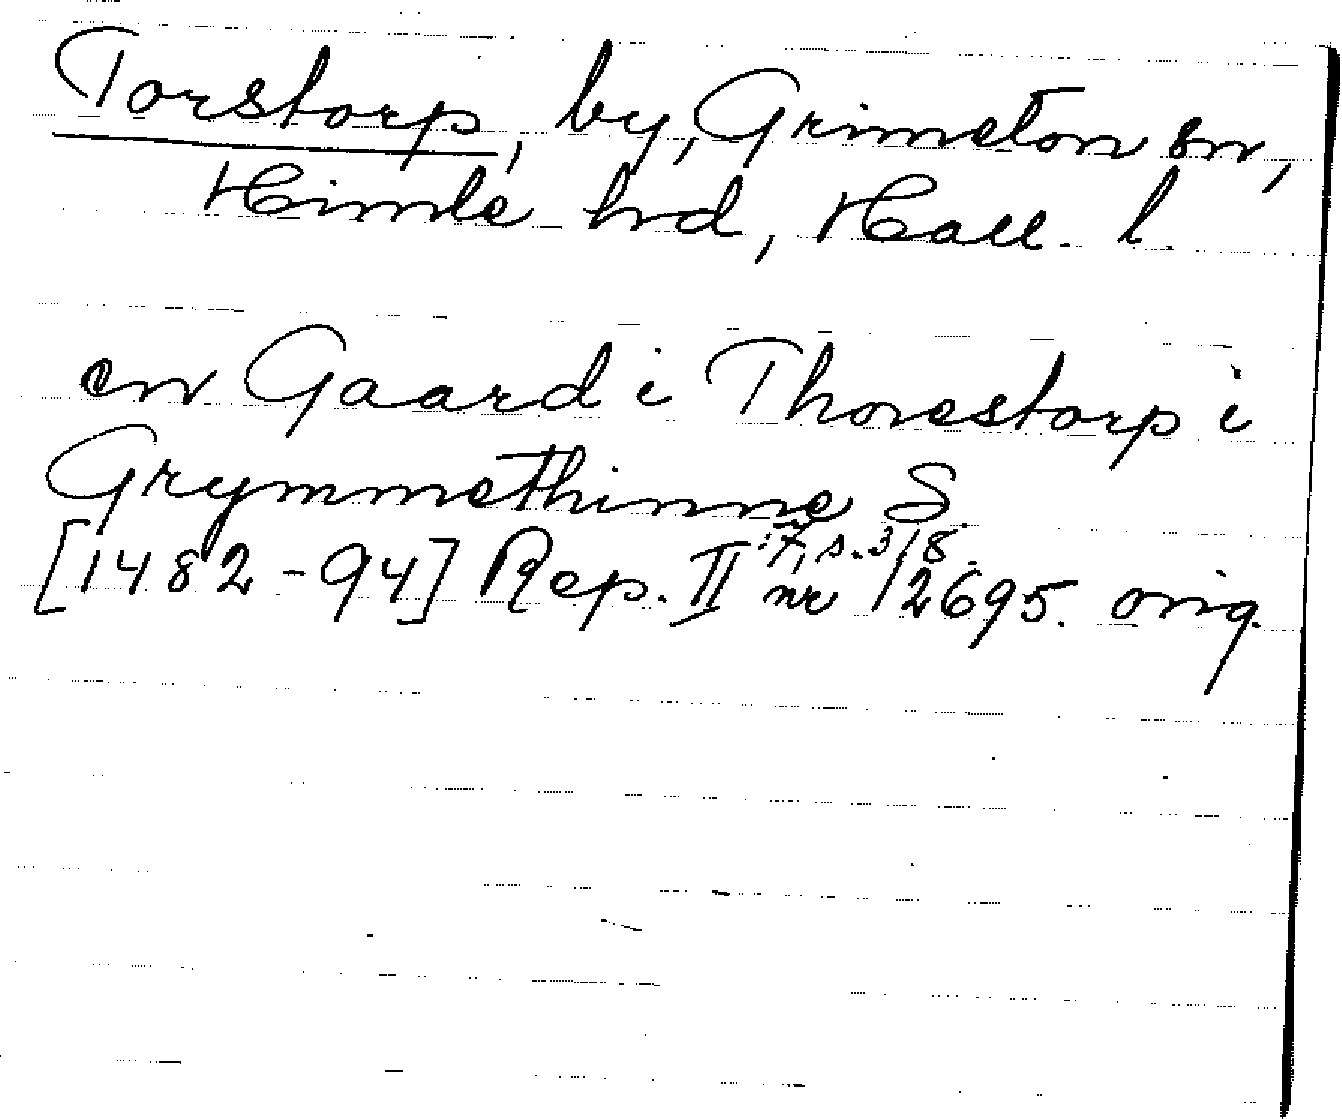 Torstorp, by, Grimeton sn,
Himle hd, Hall. l.
en Gaard i Thorestorp i
Grymmethinne S.
[1482-94] Rep. II :7, s. 318. nr 12695. orig.